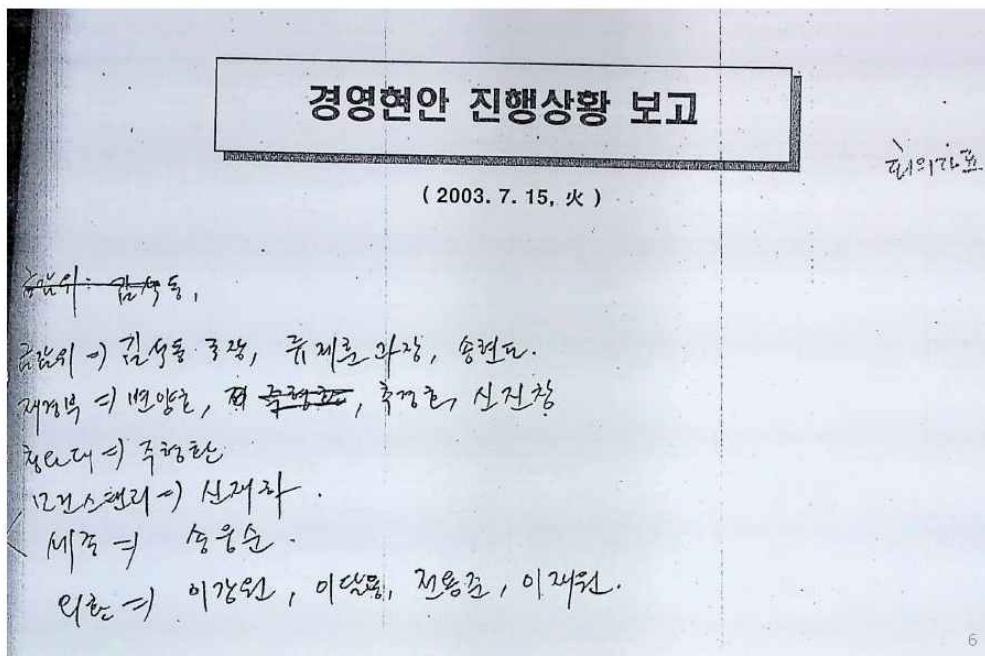 경영현안 진행상황 보고
회의자료
( 2003. 7. 15, 火 )
금감위 : 김석동,
금감위 ⇒ 김석동 국장, 유재훈 과장, 송현도.
재경부 ⇒ 변양호, 주형환, 추경호, 신진창
청와대 ⇒ 주형환
모건스탠리 ⇒ 신재하.
세종 ⇒ 송웅순.
외환 ⇒ 이강원, 이달용, 전용준, 이재원.
6